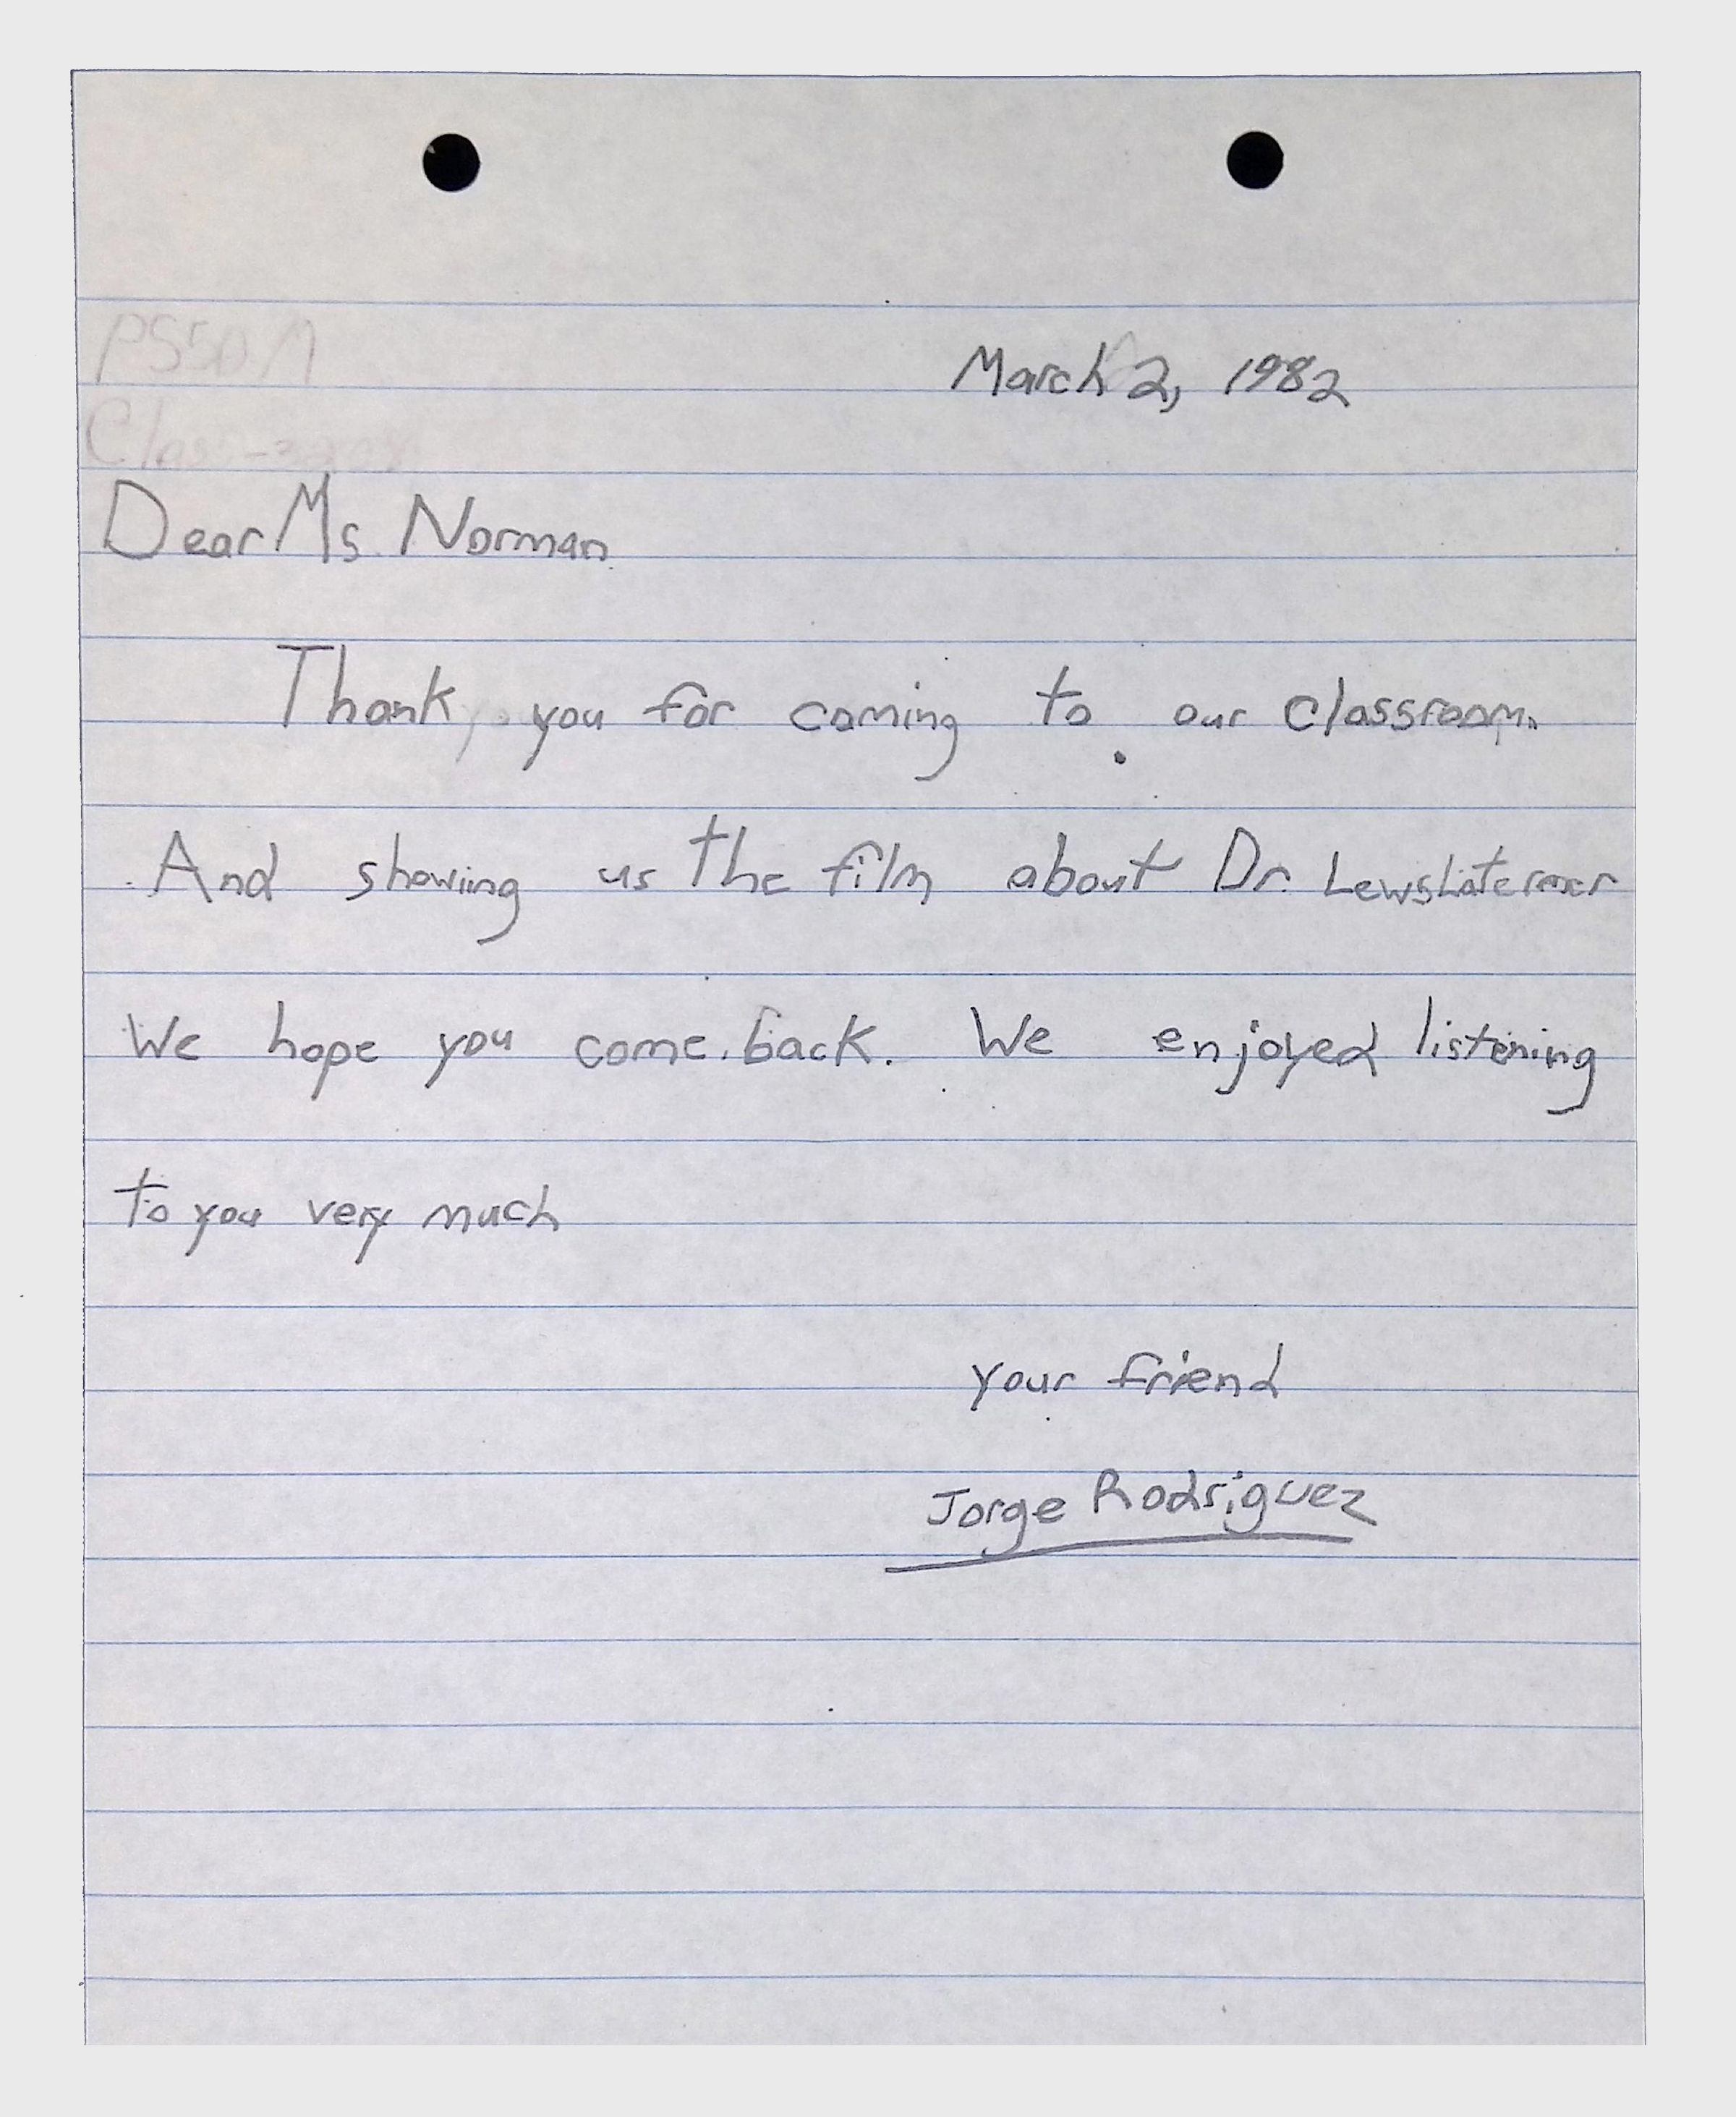 PS50M
March 2, 1982
Class
Dear Ms. Norman
Thank you for coming to our classroom.
And showing us the film about Dr. Lews Latermer
We hope you come back. We enjoyed listening
to you very much
your friend
Jorge Rodriguez